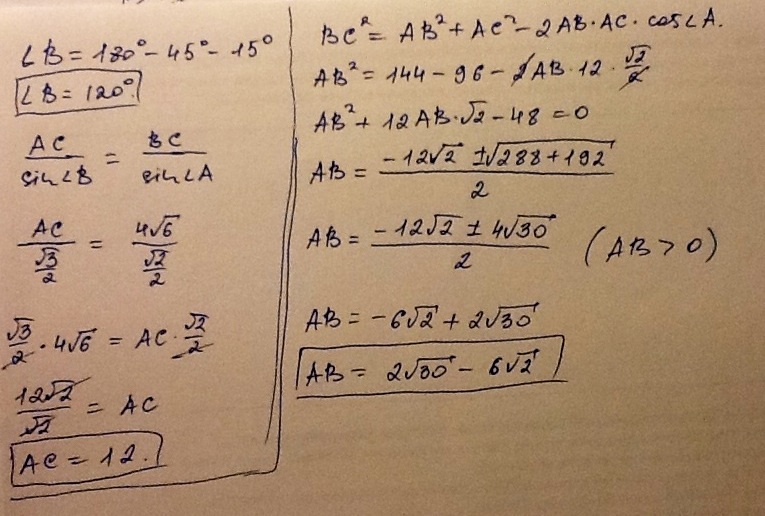 ∠B = 180° - 45° - 15°
∠B = 120°
AC / sin∠B = BC / sin∠A
AC / (√3/2) = 4√6 / (√2/2)
√3/2 · 4√6 = AC · √2/2
12√2 / √2 = AC
AC = 12.
BC² = AB² + AC² - 2AB·AC·cos∠A.
AB² = 144 - 96 - 2AB·12·√2/2
AB² + 12AB·√2 - 48 = 0
AB = (-12√2 ± √288+192) / 2
AB = (-12√2 ± 4√30) / 2 (AB > 0)
AB = -6√2 + 2√30
AB = 2√30 - 6√2